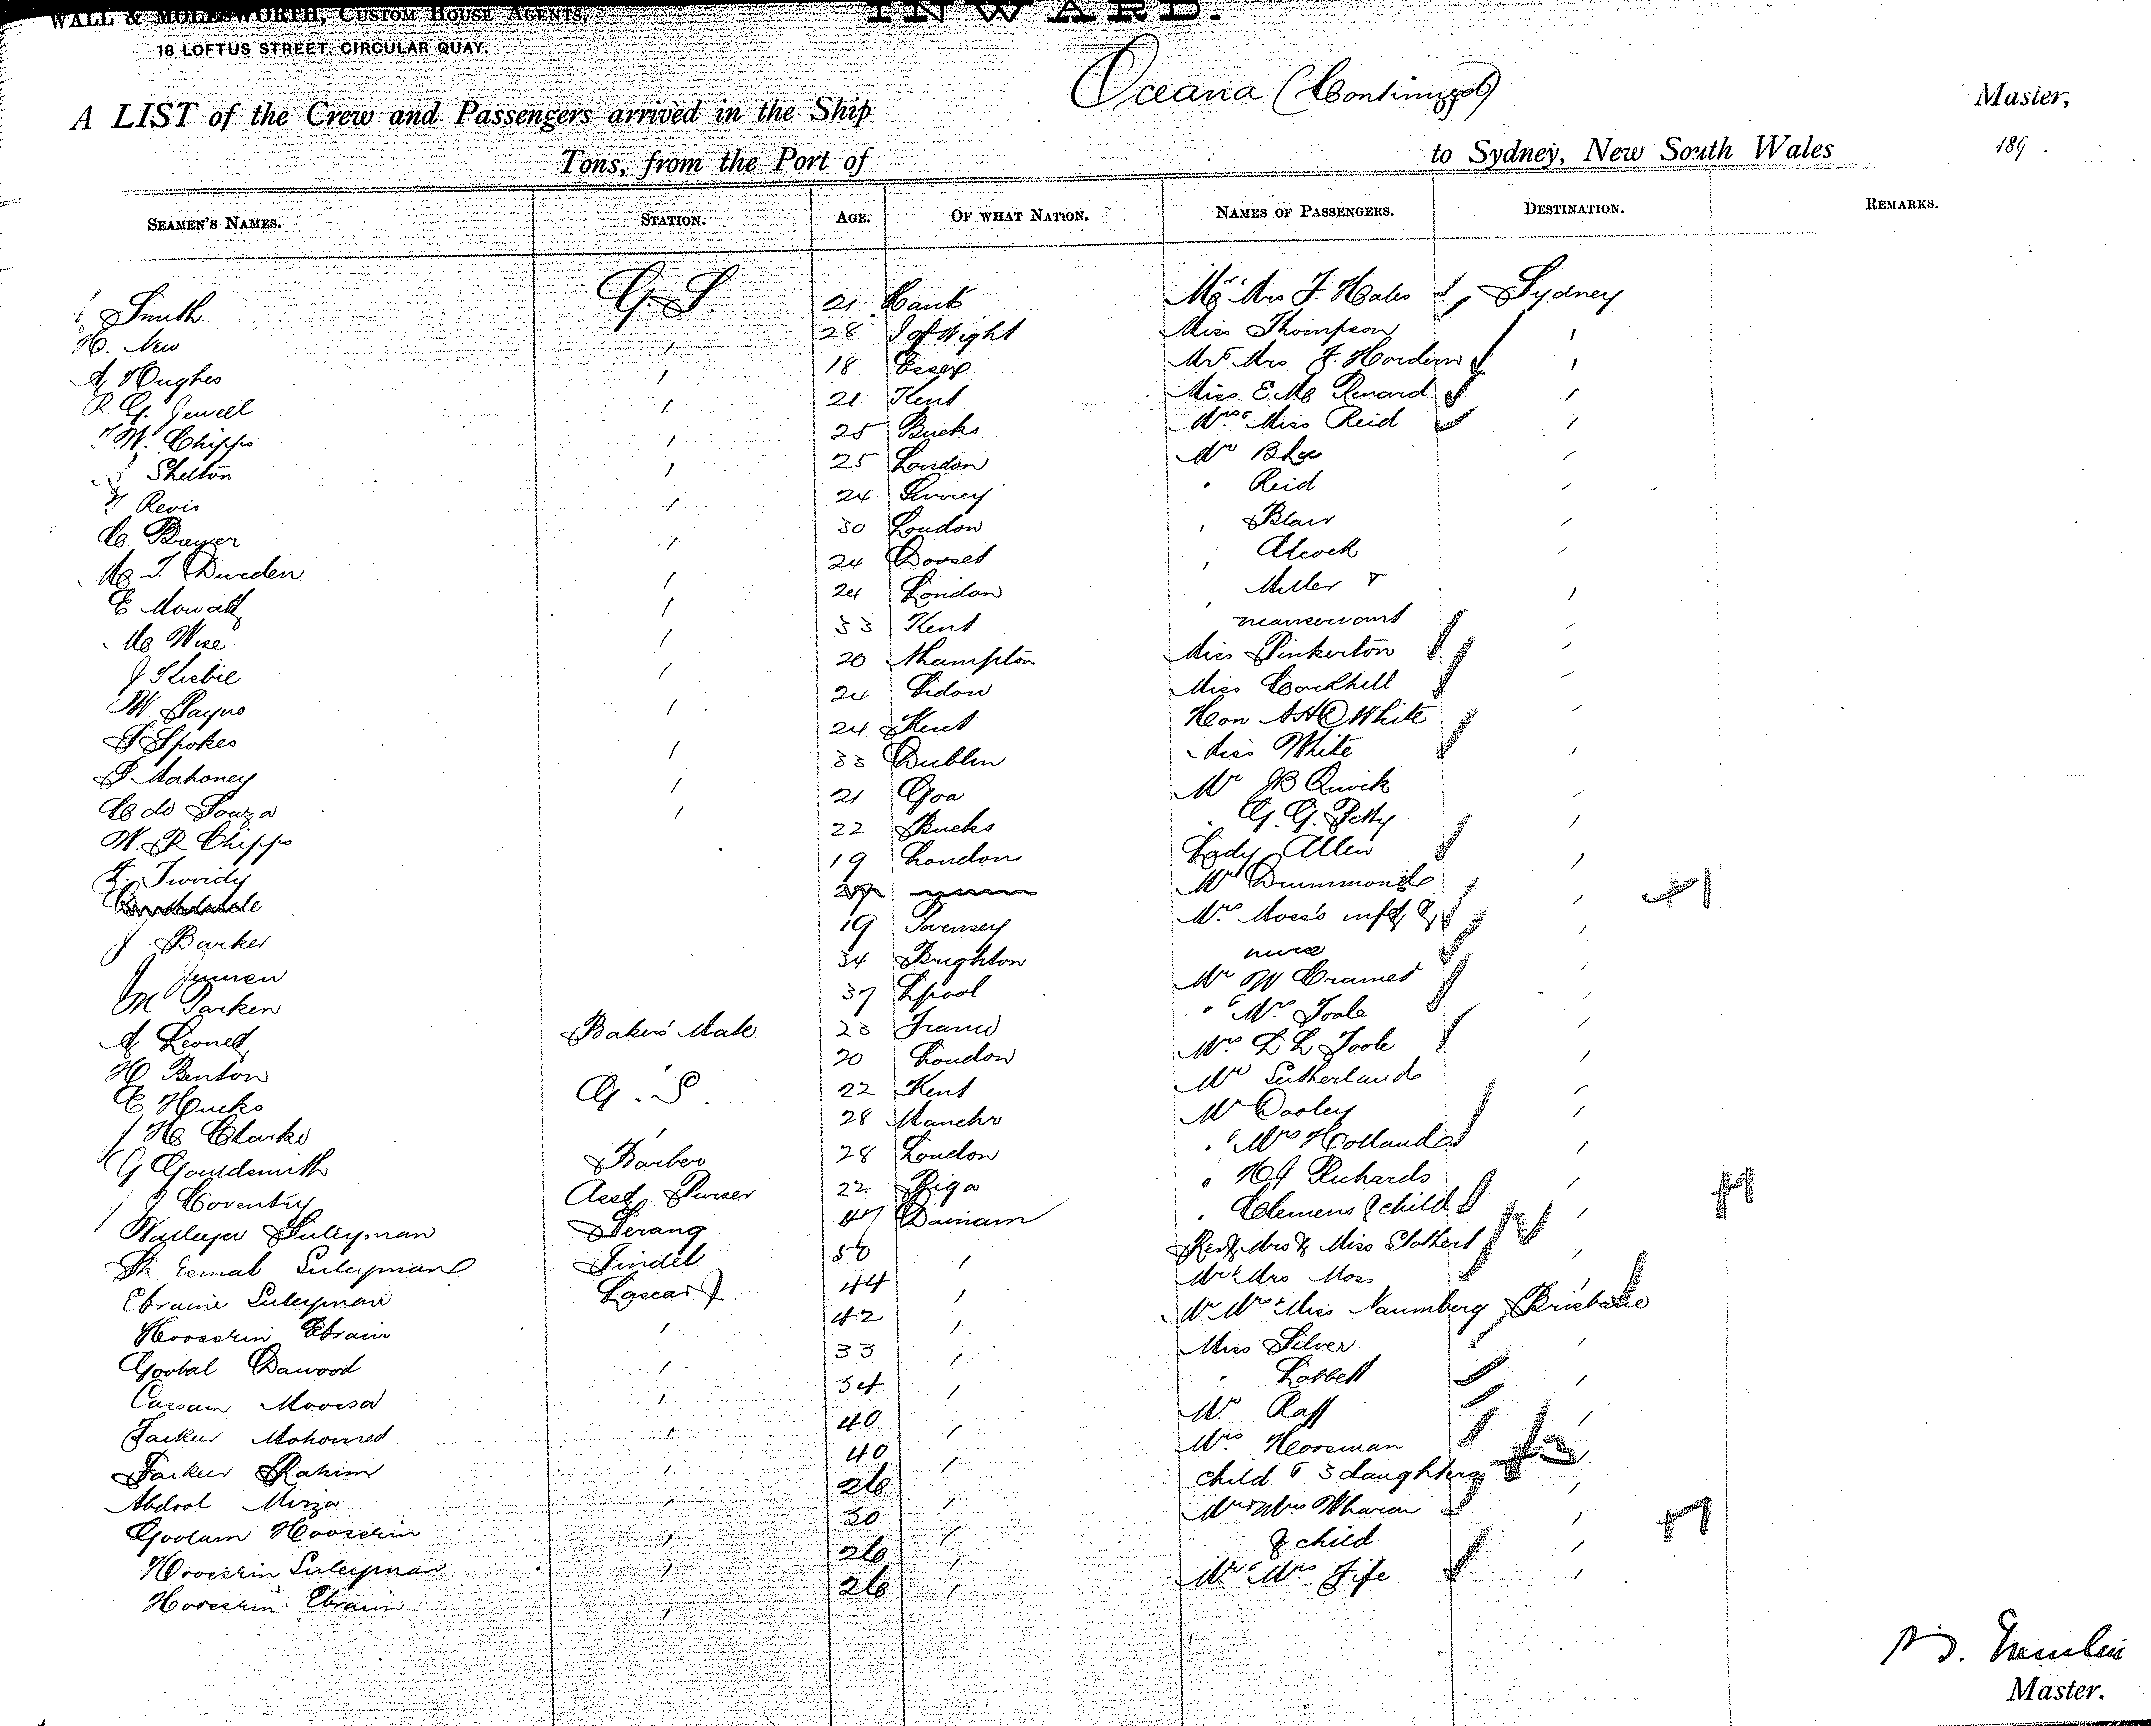 WALL & MOLESWORTH, CUSTOM HOUSE AGENTS,
18 LOFTUS STREET, CIRCULAR QUAY.
INWARD.
A LIST of the Crew and Passengers arrived in the Ship Oceana (Continued) Master,
Tons, from the Port of to Sydney, New South Wales 189 .
SEAMEN'S NAMES. STATION. AGE. OF WHAT NATION. NAMES OF PASSENGERS. DESTINATION. REMARKS.
Smith G.S. 21 Mr & Mrs F. Hales Sydney
H. New " 28 I of Wight Miss Thompson "
A Hughes " 18 Essex Mr & Mrs F. Hordern "
R. G. Jewell " 21 Kent Miss Renard "
W. Chipps " 25 Bucks Mrs & Miss Reid "
Shelton " 25 London Mr "
Revis " 24 Surrey " Reid "
C. Bayer " 30 London " Blair "
Durden " 24 Dorset " Alcock "
E Mowatt " 24 London " Miller & "
Wise " 33 Kent manservant "
J Skebie " 20 Nhampton Miss Pinkerton "
W Payne " 24 Miss Cockhill "
S Spokes " 24 Kent Hon White "
Mahoney " 33 Dublin Miss White "
C de Souza " 21 Goa Mr B Quick "
W. R Chipps 22 Bucks " G. G. Petty "
Twoidy 19 London Lady Allen "
Mr Drummond "
J Barker 19 Pevensey Mrs Moss inft & "
J 34 Brighton nurse
M Parken 37 Lpool Mr W Cramer "
A Lionet Bakers Mate 23 France " & Mrs Toole "
H Benton 20 London Mrs D L Toole "
E Hucks G.S. 22 Kent Mr Sutherland "
H Clarke " 28 Manchr Mr Dooley "
G Gouldsmith Barber 28 London " & Mrs Holland "
J Coventry Asst Purser 22 Riga " H J Richards "
Suleyman Serang 47 Damam " Clemens & child "
Esmal Suleyman Tindel 50 " Rev & Mrs & Miss Stothert "
Ebraim Suleyman Lascar 44 " Mr & Mrs Moss "
Hoosein Ebraim " 42 " Mr Mrs & Miss Naumberg Brisbane
Goolal Dawood " 33 " Miss Silver "
Cassam Moosa " 34 " "
Fackeer Mohomed " 40 " Mr Raff "
Fackeer Rahim " 40 " Mrs Horsman "
Abdool Mirza " 26 " child & 3 daughters "
Goolam Hoosein " 30 " Mr & Mrs "
Hoosein Suleyman " 26 " & child "
Hoosein Ebraim " 26 " Mr & Mrs Fife "
Master.